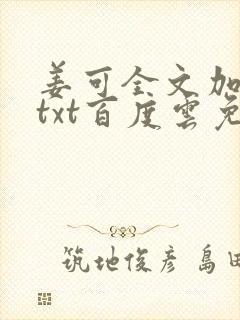 姜可全文加
txt百度雲免
筑地俊彦 島田